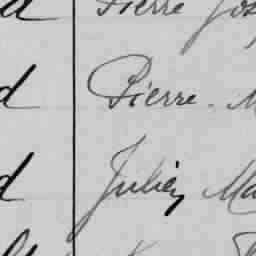 d Pierre Jos
d Pierre. M
d Julien Ma